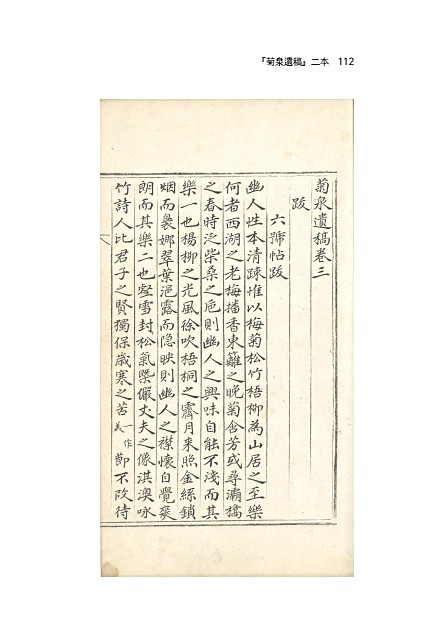 『菊泉遺稿』二本 112
菊泉遺稿卷三
跋
六號帖跋
幽人性本清踈惟以梅菊松竹梧柳為山居之至樂
何者西湖之老梅播香東籬之晚菊含芳或尋灞橋
之春時泛柴桑之巵則幽人之興味自能不淺而其
樂一也楊柳之光風徐吹梧桐之霽月来照金絲鎖
烟而裊娜翠葉浥露而隐映則幽人之襟懷自覺爽
朗而其樂二也壑雪封松氣槩儼丈夫之像淇澳咏
竹詩人比君子之賢獨保歲寒之苦一作美節不改待